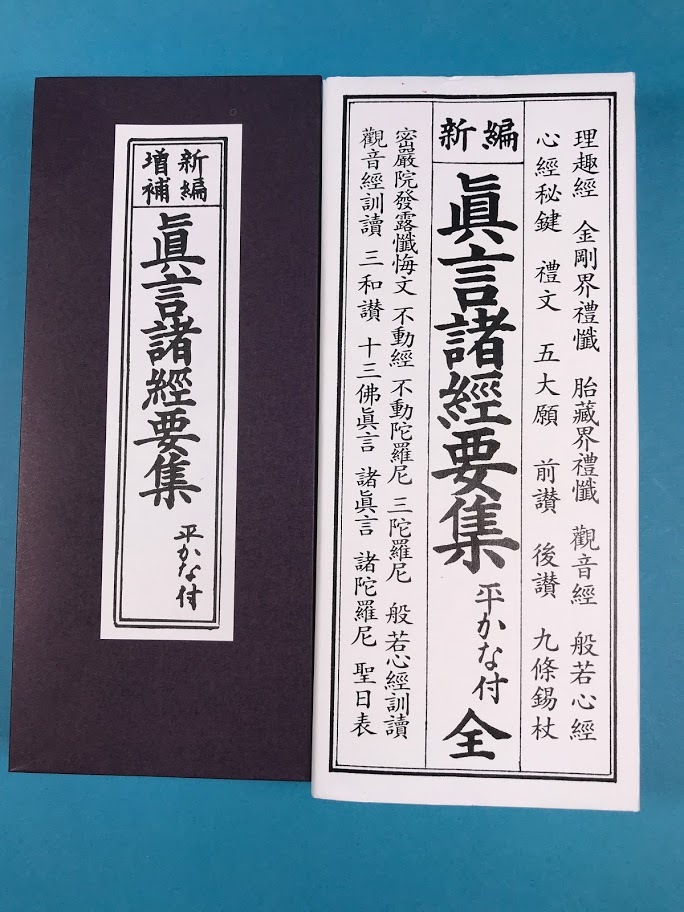 新編
増補
眞言諸經要集
平かな付
理趣經 金剛界禮懺 胎藏界禮懺 觀音經 般若心經
心經秘鍵 禮文 五大願 前讃 後讃 九條錫杖
新編
眞言諸經要集 平かな付 全
密嚴院發露懺悔文 不動經 不動陀羅尼 三陀羅尼 般若心經訓讀
觀音經訓讀 三和讃 十三佛眞言 諸眞言 諸陀羅尼 聖日表